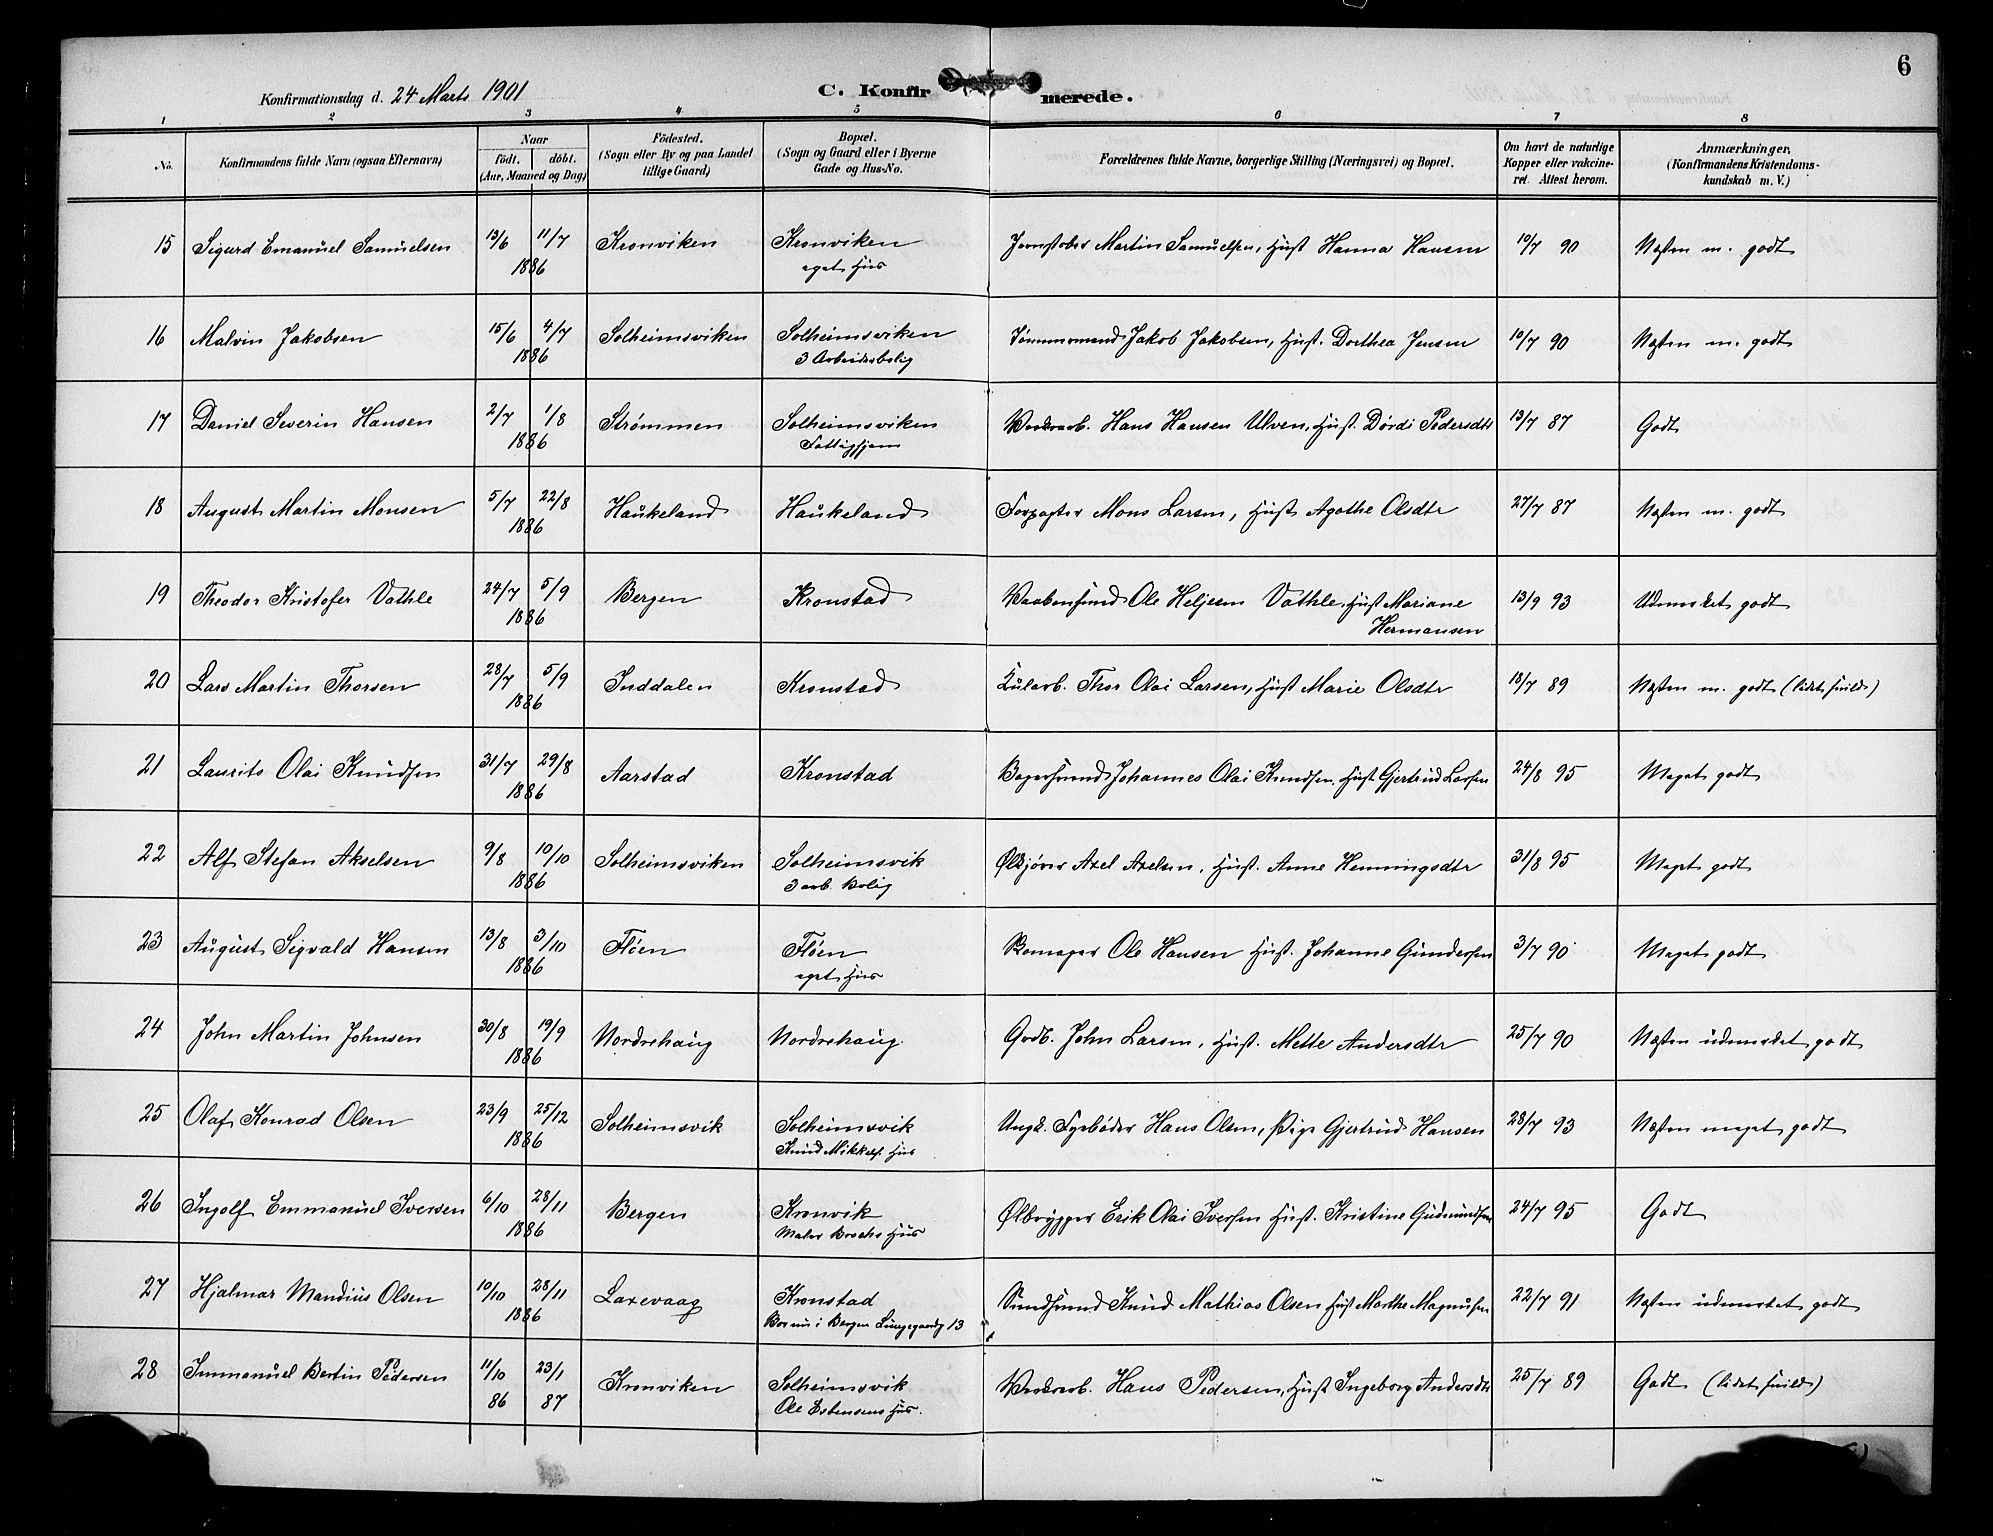 6
Konfirmationsdag d. 24 Marts 1901
C. Konfirmerede.
1 2 3 4 5 6 7 8
No. Konfirmandens fulde Navn (ogsaa Efternavn) Naar födt. döbt. (Aar, Maaned og Dag) Födested. (Sogn eller By og paa Landet tillige Gaard) Bopæl. (Sogn og Gaard eller i Byerne Gade og Hus-No. Forældrenes fulde Navne, borgerlige Stilling (Næringsvei) og Bopæl. Om havt de naturlige Kopper eller vakcineret. Attest herom. Anmærkninger, (Konfirmandens Kristendomskundskab m. V.)
15 Sigurd Emanuel Samuelsen 13/6 11/7 Kronviken Kronviken Jernstøber Martin Samuelsen, Hust Hanna Hansen 10/7 90 Næsten m. godt
1886 eget Hus
16 Malvin Jakobsen 15/6 4/7 Solheimsviken Solheimsviken Tømmermand Jakob Jakobsen, Hust. Dorthea Jensen 10/7 90 Næsten m. godt
1886 3 Arbeiderbolig
17 Daniel Severin Hansen 2/7 1/8 Strømmen Solheimsviken Værkarb. Hans Hansen Ulven, Hust. Dørdi Pedersdtr 13/7 87 Godt
1886 Fattighjem
18 August Martin Monsen 5/7 22/8 Haukeland Haukeland Forpagter Mons Larsen, Hust Agathe Olsdtr 27/7 87 Næsten m. godt
1886
19 Theodor Kristofer Vathle 24/7 5/9 Bergen Kronstad Ole Heljesen Vathle, Hust Mariane 13/9 93 Udmerket godt
1886 Hermansen
20 Lars Martin Thorsen 28/7 5/9 Inddalen Kronstad Thor Olai Larsen, Hust Marie Olsdtr 18/7 89 Næsten m. godt (lidet hvild)
1886
21 Laurits Olai Knudsen 31/7 29/8 Aarstad Kronstad Johannes Olai Knudsen, Hust Gjertrud Larsen 24/8 95 Meget godt
1886
22 Alf Stefan Akselsen 9/8 10/10 Solheimsviken Solheimsvik Ølkjører Axel Axelsen, Hust. Anne Henningsdtr 31/8 95 Meget godt
1886 3 arb. Bolig
23 August Sigvald Hansen 13/8 3/10 Fløen Fløen Skomager Ole Hansen Hust. Johanne Gundersen 3/7 90 Meget godt
1886 eget Hus
24 John Martin Johnsen 30/8 19/9 Nordrehaug Nordrehaug Grdb. John Larsen, Hust. Mette Andersdtr 25/7 90 Næsten udmerket godt
1886
25 Olaf Konrad Olsen 23/9 25/12 Solheimsvik Solheimsvik Ungk. Fyrbøder Hans Olsen, Pige Gjertrud Hansen 28/7 93 Næsten meget godt
1886 Knud Mikkels. Hus
26 Ingolf Emmanuel Iversen 6/10 28/11 Bergen Kronvik Ølbrygger Erik Olai Iversen Hust. Kristine Gudmundsen 24/7 95 Godt
1886 Maler Brochs Hus
27 Hjalmar Mandius Olsen 10/10 28/11 Laxevaag Kronstad Knud Mathias Olsen Hust Marthe Magnusen 22/7 91 Næsten udmerket godt
1886 Bor nu i Bergen Lungegaardg 13
28 Immanuel Bertin Pedersen 11/10 23/1 Kronviken Solheimsvik Værkarb. Hans Pedersen, Hust Ingeborg Andersdtr 25/7 89 Godt (lidet hvild)
86 87 Ole Estensens Hus.